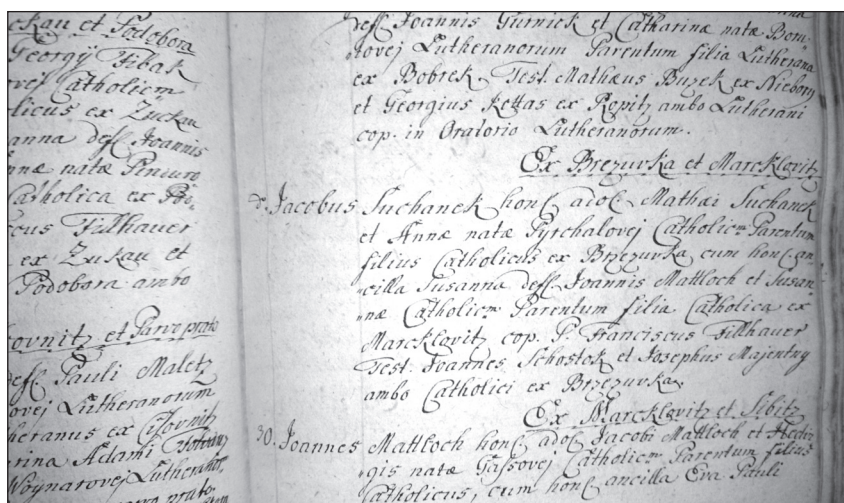 ckau et Podobora
Georgÿ Fibak
ovej Catholicm
licus ex Zuckau
anna deff Joannis
nnæ natæ
Catholica ex
cus Fillhauer
ex Zukau et
Podobora ambo
ovnitz et Parvoprato
eff. Pauli Maletz
ovej Lutheranorum
heranus ex
rina Adami
Woÿnarovej Lutheranor.
deff Joannis Gurniek et Catharinæ natæ Bom-
tovej Lutheranorum Parentum filia Lutherana
ex Bobrek Test. Mathæus Buzek ex Niebory
et Georgius Kettas ex Ropitz ambo Lutherani
cop. in Oratorio Lutheranorum.
Ex Brezuvka et Marcklovitz
d. Jacobus Suchanek hon adol Mathæi Suchanek
et Annæ natæ Pyrchalovej Catholicm Parentum
filius Catholicus ex Brzezuvka cum hon an
cilla Susanna deff Joannis Mattloch et Susan
næ Catholicm Parentum filia Catholica ex
Marcklovitz cop. P Franciscus Fillhauer
Test. Joannes Schostok et Josephus Majentny
ambo Catholici ex Brzezuvka
Ex Marcklovitz et Sibitz
30. Joannes Mattloch hon adol Jacobi Mattloch et Hedvi
gis natæ Gassovej Catholicm Parentum filius
Catholicus, cum hon ancilla Eva Pauli